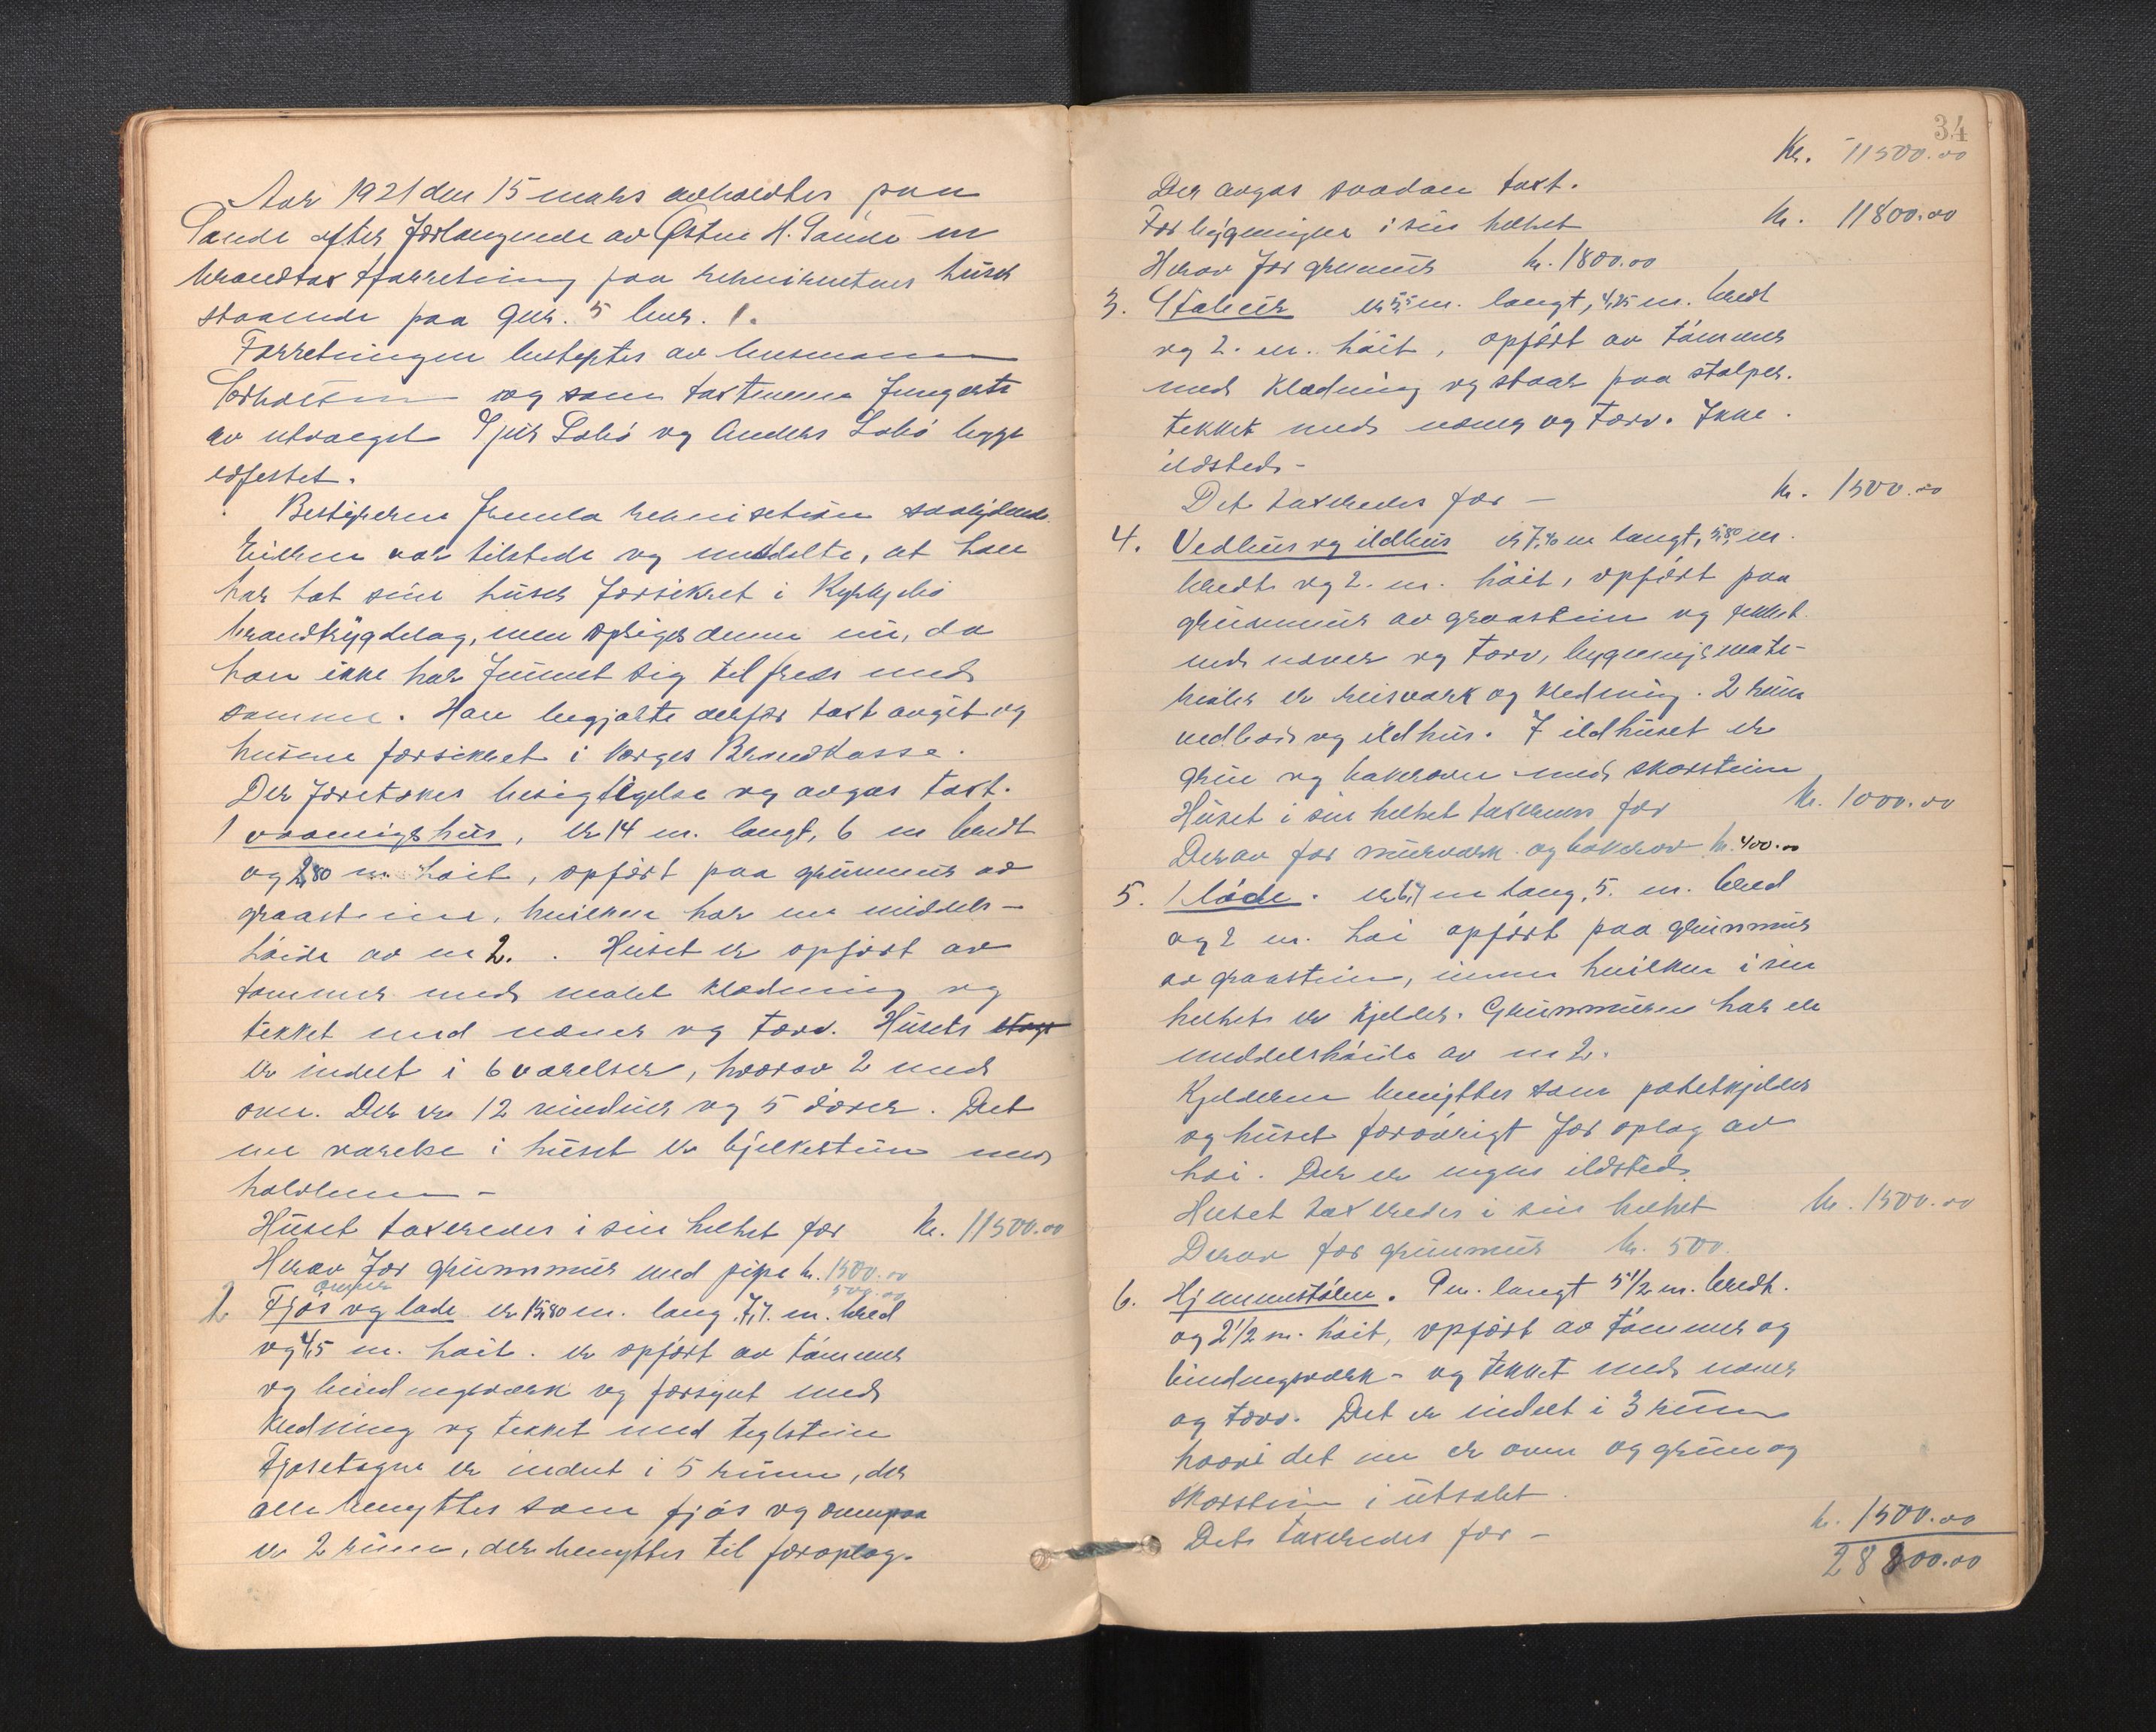 Aar 1921 den 15 mars avholdtes paa
Sande efter forlangende av Østen H. Sande en
brandtakstforretning paa rekvirentens huser
staaende paa Gnr. 5 bnr. 1.
Forretningen bestyrtes av lensmann
og som takstmenn fungerte
av utvalget Sjur Løbø og Anders Løbø begge
edfestet.
Bestyreren fremla rekvisition saalydende
Eieren var tilstede og meddelte, at han
har tat sine huser forsikret i Kyrkjebø
brandtrygdelag, men opsiger denne nu, da
han ikke har funnet sig tilfreds med
samme. Han begjærte derfor takst avgit og
husene forsikret i Norges Brandkasse.
Der foretokes besigtigelse og avgas takst.
1 vaaningshus, er 14 m. langt, 6 m bredt
og 2,80 m. høit, opført paa grunmur av
graastein, hvilken har en middels-
høide av m 2. . Huset er opført av
tømmer med malet klædning og
tekket med næver og torv. Husets etage
er indelt i 6 værelser, hvorav 2 med
ovn. Der er 12 vinduer og 5 dører. Det
ene værelse i huset er bjelkestue med
halvlem -
Huset takseredes i sin helhet for kr. 11500.00
Herav for grunnmur med pipe kr. 1500.00
ovner 500.00
2 Fjøs og lade er 15,80 m. lang, 7,7. m. bred
og 4,5 m. høit. er opført av tømmer
og bindingsverk og forsynt med
kledning og tekket med teglstein
Fjøsetagen er indelt i 5 rum, der
alle benyttes som fjøs og ovenpaa
er 2 rum, der benyttes til foroplag.
34
Kr. 11500.00
Der avgas saadan takst.
For bygningen i sin helhet kr. 11800.00
Herav for grunmur kr. 1800.00
3. Stabur er 5,5 m. langt, 4,25 m. bredt
og 2. m. høit, opført av tømmer
med klædning og staar paa stolper.
tekket med næver og torv. Ikke
ildsted. -
Det takseredes for - kr. 1500.00
4. Vedhus og ildhus er 7,40 m langt, 5,80 m.
bredt og 2. m. høit, opført paa
grunmur av graastein og tekket
med næver og torv, bygningsmate-
rialer er reisverk og kledning. 2 rum
vedbod og ildhus. I ildhuset er
grue og bakerovn med skorstein
Huset i sin helhet takseres for kr. 1000.00
Derav for murverk og bakerov kr. 400.00
5. 1 løde. er 6,1 m lang, 5. m. bred
og 2 m. høi opført paa grunmur
av graastein, innen hvilken i sin
helhet er kjelder. Grunmuren har en
middelshøide av m 2.
Kjelderen benyttes som potetkjelder
og huset forøvrigt for oplag av
høi. Der er ingen ildsted.
Huset takseredes i sin helhet kr. 1500.00
Derav for grunmur kr. 500.
6. Hjemmestølen. 9 m. langt 5 1/2 m. bredt.
og 2 1/2 m. høit, opført av tømmer og
bindingsverk - og tekket med næver
og torv. Det er indelt i 3 rum
hvori det ene er ovn og grue og
skorstein i utvalet.
Det takseredes for - kr. 1500.00
28800.00